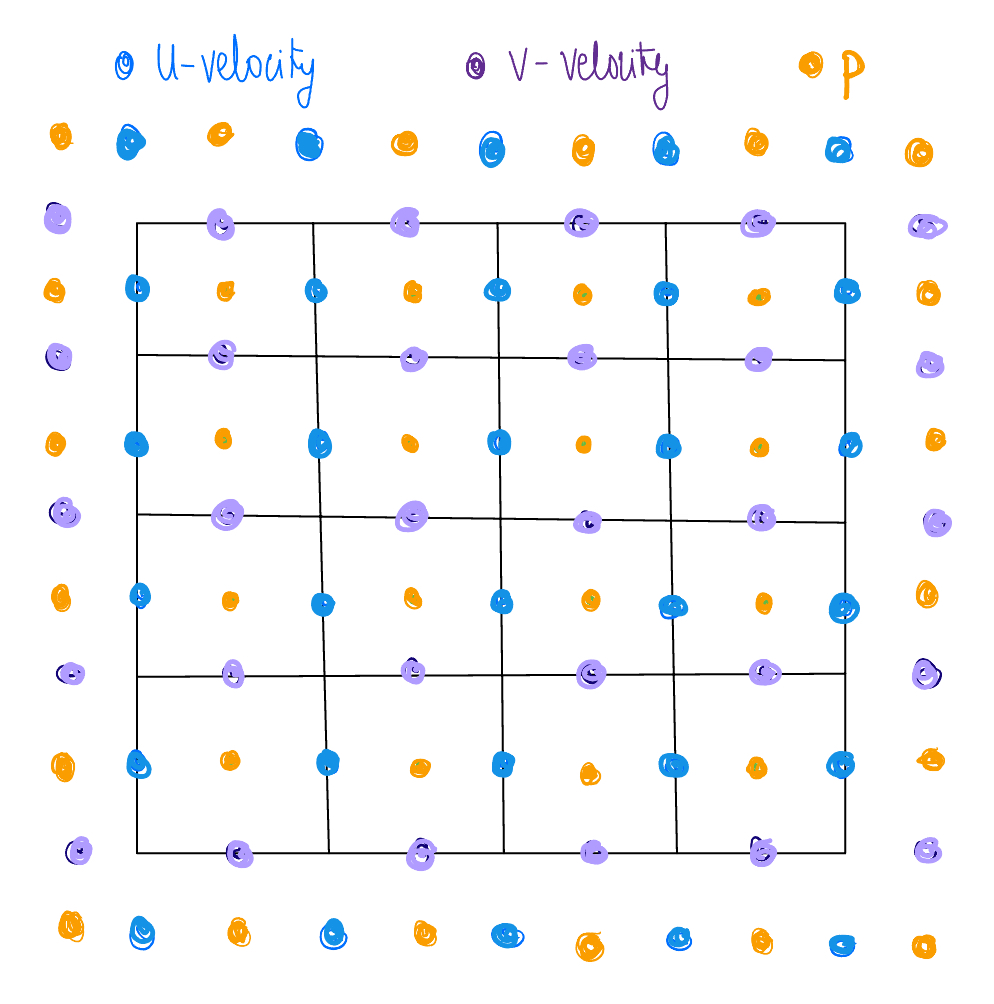 U-velocity V-velocity P